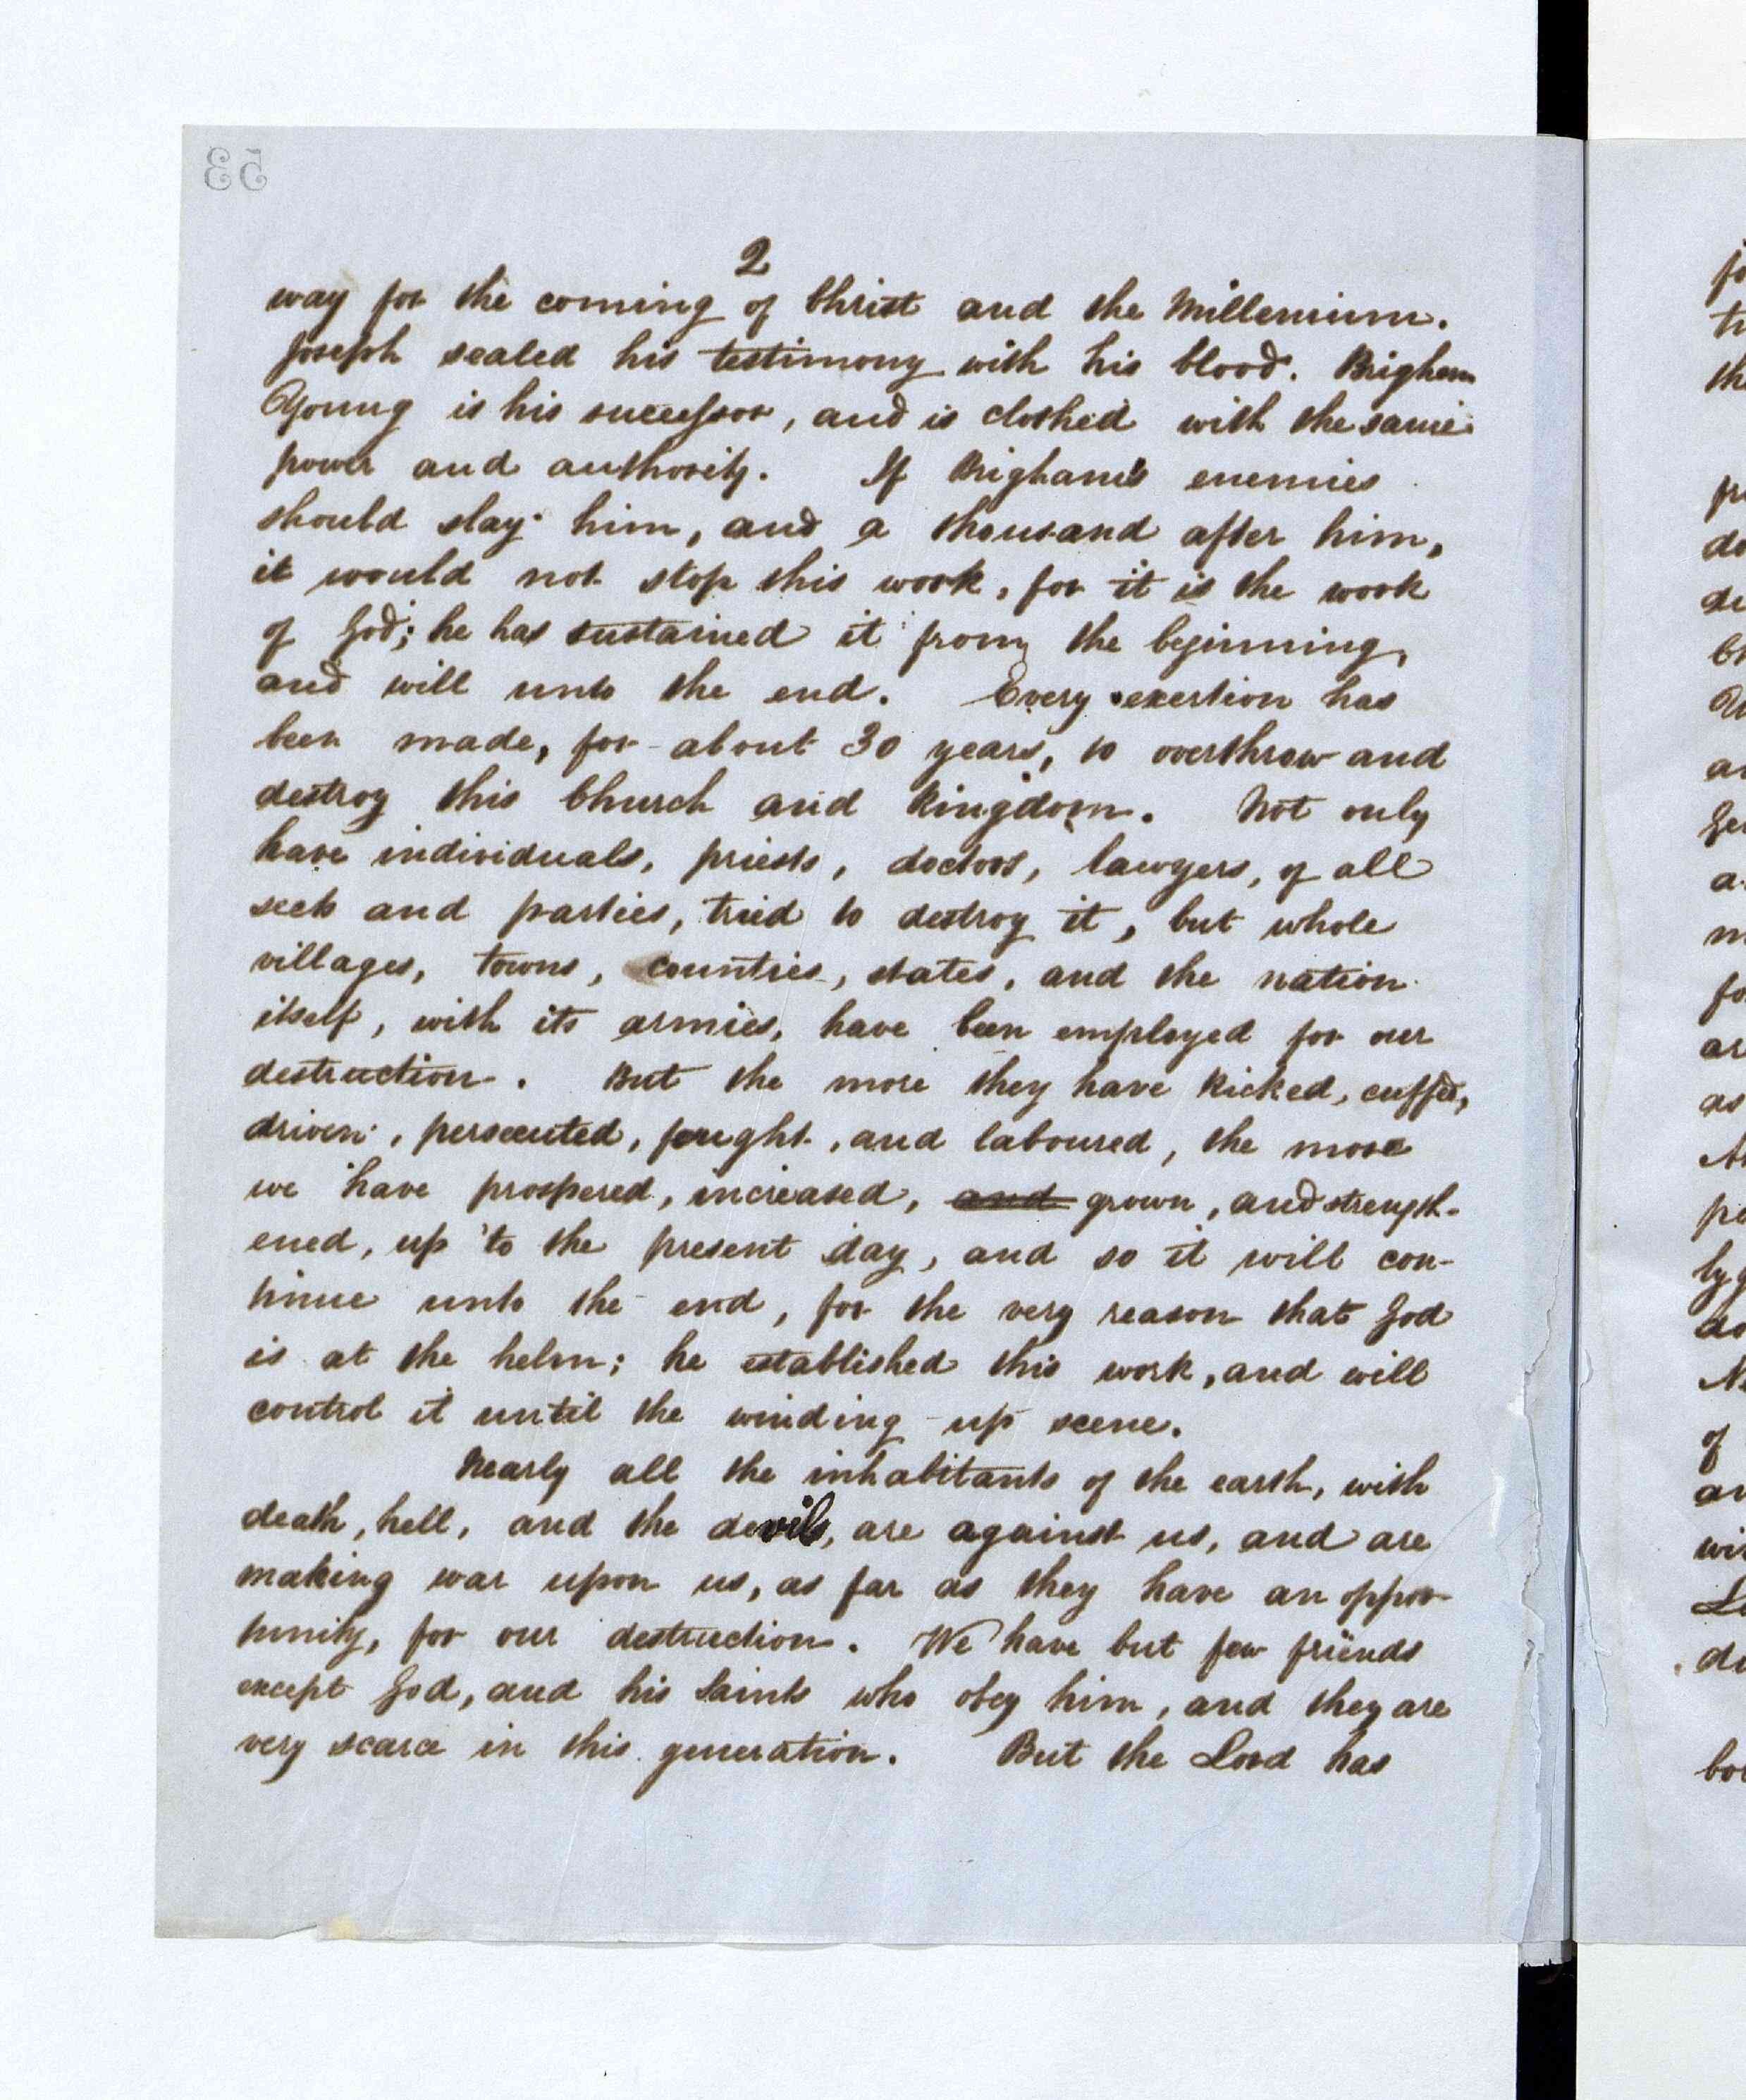 53
2
way for the coming of Christ and the Millenium.
Joseph sealed his testimony with his blood. Brigham
Young is his successor, and is clothed with the same
power and authority. If Brigham's enemies
should slay him, and a thousand after him,
it would not stop this work, for it is the work
of God; he has sustained it from the beginning,
and will unto the end. Every exertion has
been made, for about 30 years, to overthrow and
destroy this Church and Kingdom. Not only
have individuals, priests, doctors, lawyers, of all
sects and parties, tried to destroy it, but whole
villages, towns, counties, states, and the nation
itself, with its armies, have been employed for our
destruction. But the more they have kicked, cuffed,
driven, persecuted, fought, and laboured, the more
we have prospered, increased, and grown, and strength-
ened, up to the present day, and so it will con-
tinue unto the end, for the very reason that God
is at the helm; he established this work, and will
control it until the winding up scene.
Nearly all the inhabitants of the earth, with
death, hell, and the devils, are against us, and are
making war upon us, as far as they have an oppor-
tunity, for our destruction. We have but few friends
except God, and his Saints who obey him, and they are
very scarce in this generation. But the Lord has